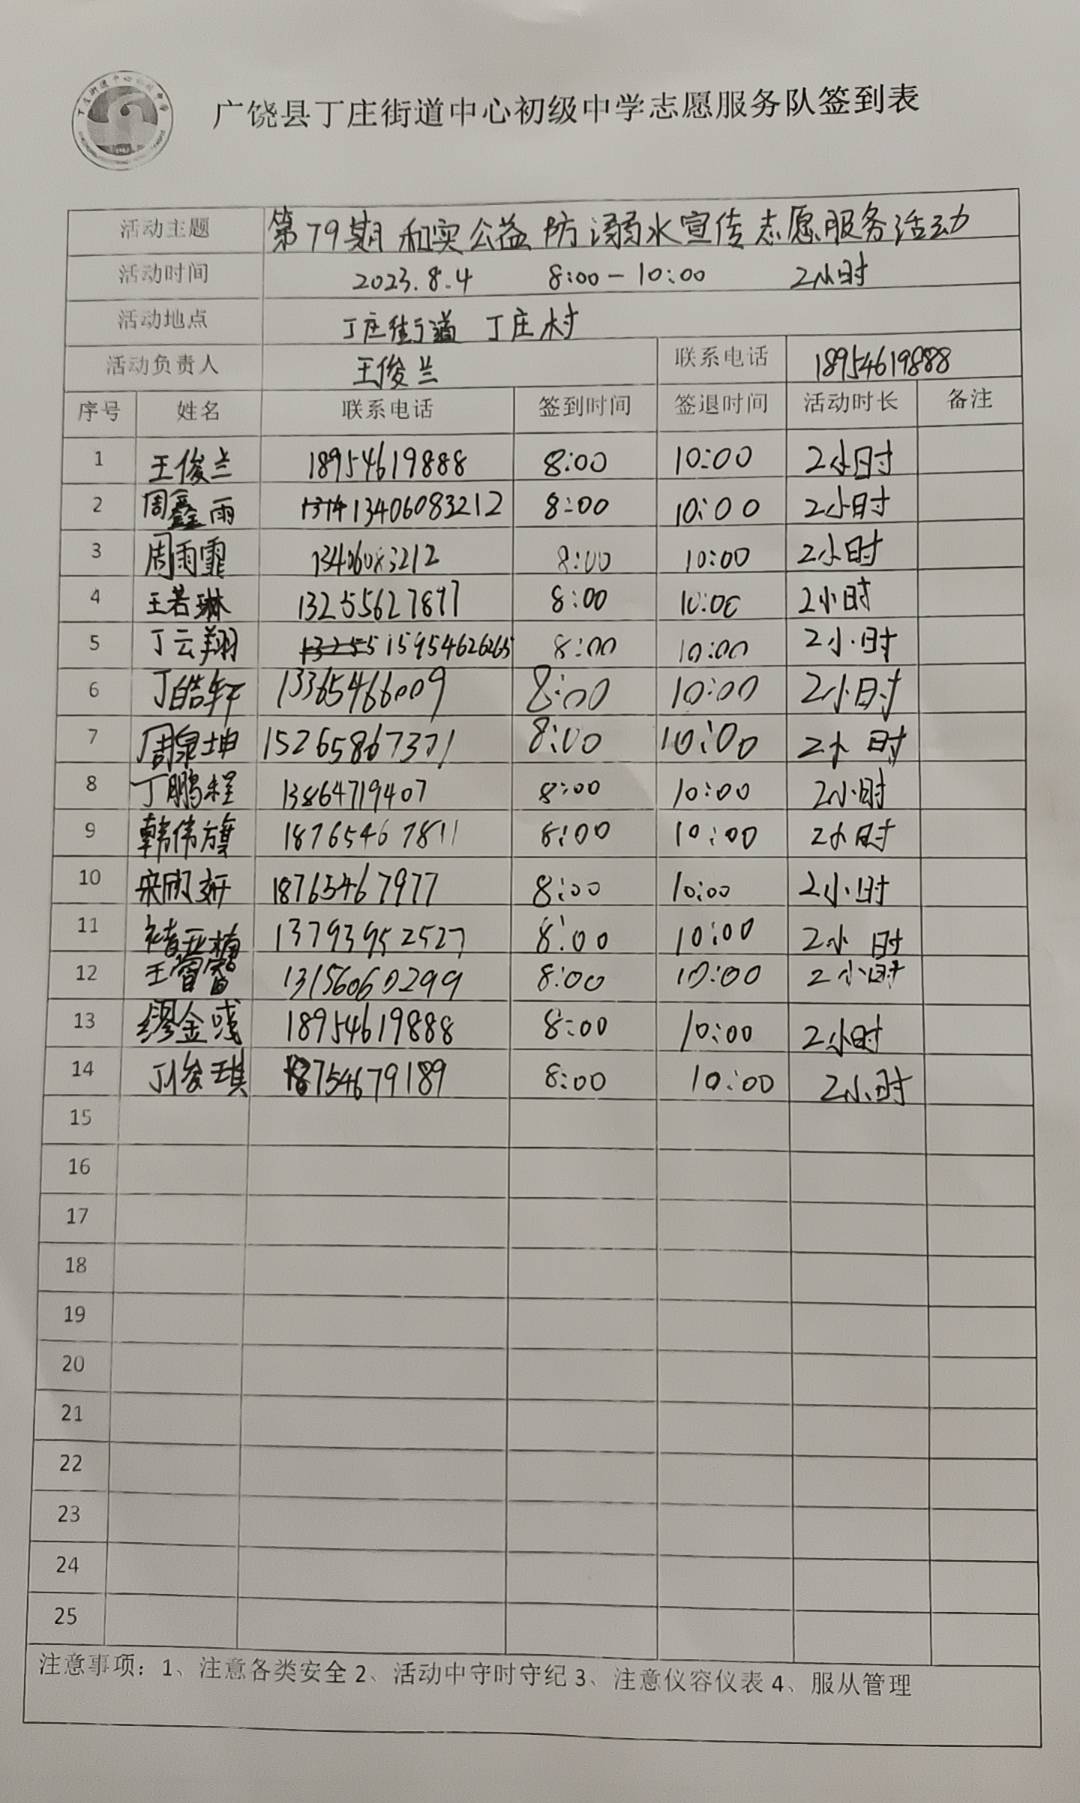 广饶县丁庄街道中心初级中学志愿服务队签到表
活动主题 第79期和实公益防溺水宣传志愿服务活动
活动时间 2023.8.4 8:00-10:00 2小时
活动地点 丁庄街道 丁庄村
活动负责人 王俊兰 联系电话 18954619888
序号 姓名 联系电话 签到时间 签退时间 活动时长 备注
1 王俊兰 18954619888 8:00 10:00 2小时
2 周鑫雨 13406083212 8:00 10:00 2小时
3 周雨霏 13406083212 8:00 10:00 2小时
4 王若琳 13255627897 8:00 10:00 2小时
5 丁云翔 15954626265 8:00 10:00 2小时
6 丁皓轩 13365466009 8:00 10:00 2小时
7 周泉坤 15265867371 8:00 10:00 2小时
8 丁鹏程 13864719407 8:00 10:00 2小时
9 韩伟旗 18765467811 8:00 10:00 2小时
10 宋欣妍 18765467977 8:00 10:00 2小时
11 13793952527 8:00 10:00 2小时
12 王 13156060299 8:00 10:00 2小时
13 缪金彧 18954619888 8:00 10:00 2小时
14 丁俊琪 18754679189 8:00 10:00 2小时
15
16
17
18
19
20
21
22
23
24
25
注意事项：1、注意各类安全 2、活动中守时守纪 3、注意仪容仪表 4、服从管理